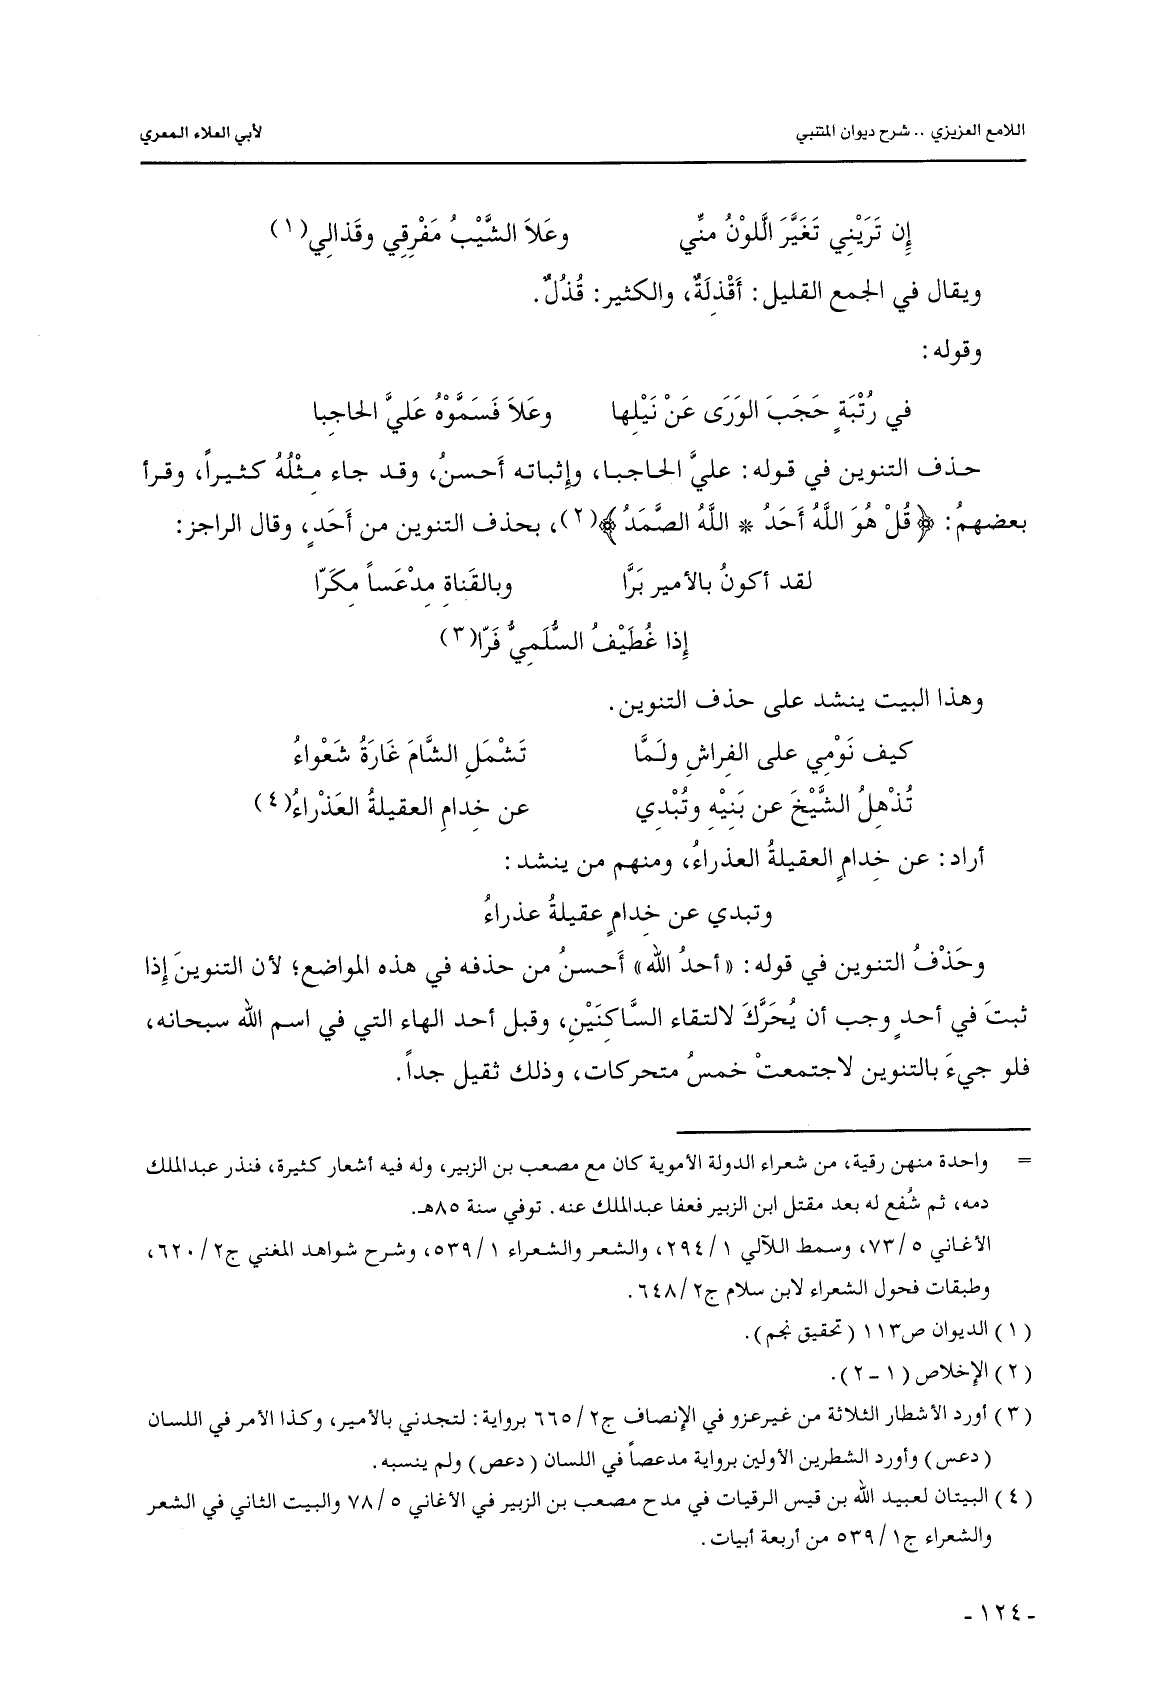 اللامع العزيزي .. شرح ديوان المتنبي لأبي العلاء المعري
إِن تَرَيْنِي تَغَيَّرَ الَّلونُ منِّي وعَلاَ الشَّيْبُ مَفْرِقِي وقَذالِي(١)
ويقال في الجمع القليل: أَقْذِلَةٌ، والكثير: قُذُلٌ.
وقوله:
في رُتْبَةٍ حَجَبَ الوَرَى عَنْ نَيْلِها وعَلاَ فَسَمَّوْهُ عَليَّ الحاجبا
حذف التنوين في قوله: عليَّ الحاجبا، وإثباته أَحسنُ، وقد جاء مِثْلُهُ كثيراً، وقرأ
بعضهمُ: ﴿قُلْ هُوَ اللَّهُ أَحَدُ * اللَّهُ الصَّمَدُ﴾(٢)، بحذف التنوين من أَحَدٍ، وقال الراجز:
لقد أكونُ بالأمير بَرَّا وبالقَناةِ مِدْعَساً مِكَرّا
إِذا غُطَيْفُ السُّلَمِيُّ فَرّا(٣)
وهذا البيت ينشد على حذف التنوين.
كيف نَوْمِي على الفِراشِ ولَمَّا تَشْمَلِ الشَّامَ غَارَةٌ شَعْواءُ
تُذْهِلُ الشَّيْخَ عن بَنِيْهِ وتُبْدِي عن خِدامِ العقيلةُ العَذْراءُ(٤)
أراد: عن خِدامٍ العقيلةُ العذراءُ، ومنهم من ينشد:
وتبدي عن خِدامٍ عقيلةُ عذراءُ
وحَذْفُ التنوين في قوله: «أحدُ الله» أَحسنُ من حذفه في هذه المواضع؛ لأن التنوينَ إِذا
ثبتَ في أحدٍ وجب أن يُحَرَّكَ لالتقاء السَّاكِنَيْنِ، وقبل أحد الهاء التي في اسم الله سبحانه،
فلو جيءَ بالتنوين لاجتمعتْ خمسُ متحركات، وذلك ثقيل جداً.
= واحدة منهن رقية، من شعراء الدولة الأموية كان مع مصعب بن الزبير، وله فيه أشعار كثيرة، فنذر عبدالملك
دمه، ثم شُفع له بعد مقتل ابن الزبير فعفا عبدالملك عنه. توفي سنة ٨٥هـ.
الأغاني ٧٣/٥، وسمط اللآلي ٢٩٤/١، والشعر والشعراء ٥٣٩/١، وشرح شواهد المغني ج٦٢٠/٢،
وطبقات فحول الشعراء لابن سلام ج٦٤٨/٢.
(١) الديوان ص١١٣ (تحقيق نجم).
(٢) الإخلاص (١ – ٢).
(٣) أورد الأشطار الثلاثة من غيرعزو في الإنصاف ج٦٦٥/٢ برواية: لتجدني بالأمير، وكذا الأمر في اللسان
(دعس) وأورد الشطرين الأولين برواية مدعصاً في اللسان (دعص) ولم ينسبه.
(٤) البيتان لعبيد الله بن قيس الرقيات في مدح مصعب بن الزبير في الأغاني ٧٨/٥ والبيت الثاني في الشعر
والشعراء ج٥٣٩/١ من أربعة أبيات.
- ١٢٤ -